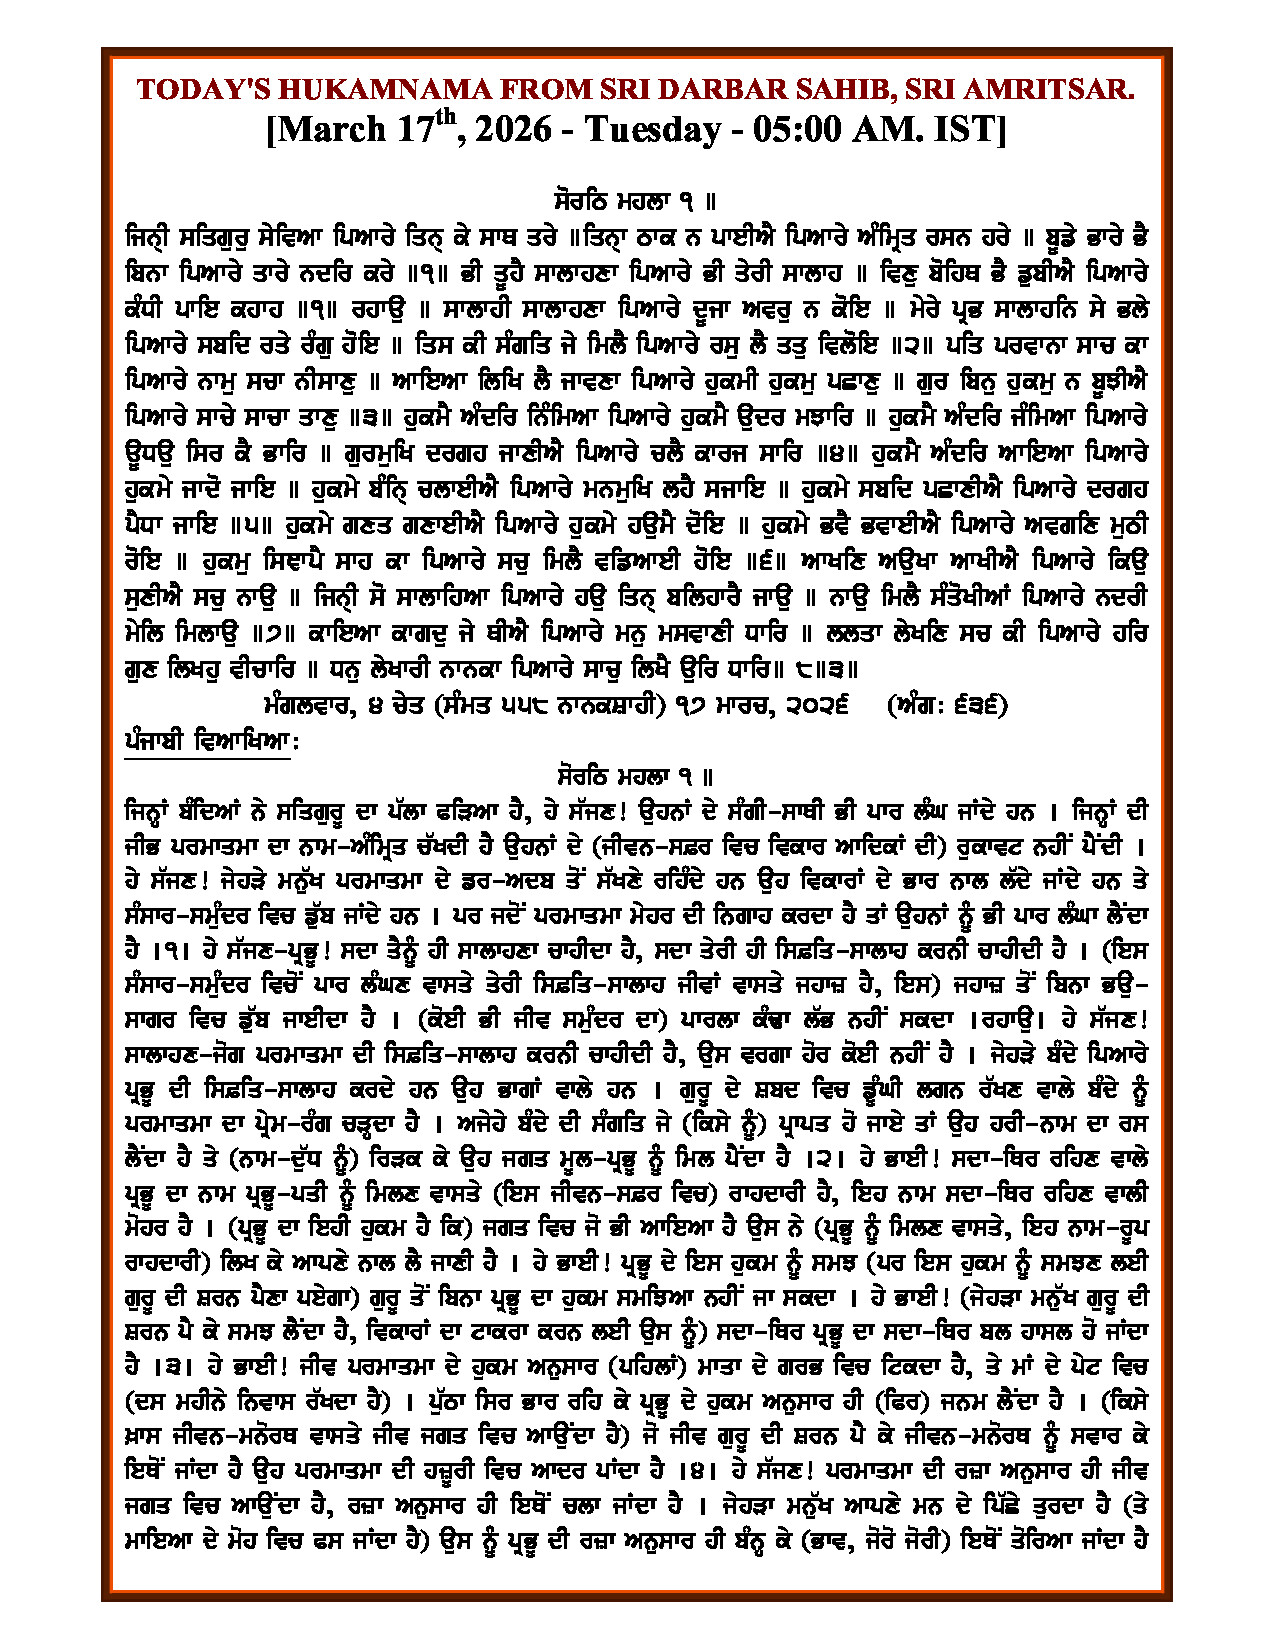 TODAY'S HUKAMNAMA FROM SRI DARBAR SAHIB, SRI AMRITSAR.
[March 17th, 2026 - Tuesday - 05:00 AM. IST]
ਸੋਰਠਿ ਮਹਲਾ ੧ ॥
ਜਿਨ੍ਹੀ ਸਤਿਗੁਰੁ ਸੇਵਿਆ ਪਿਆਰੇ ਤਿਨ੍ਹ ਕੇ ਸਾਥ ਤਰੇ ॥ਤਿਨ੍ਹਾ ਠਾਕ ਨ ਪਾਈਐ ਪਿਆਰੇ ਅੰਮ੍ਰਿਤ ਰਸਨ ਹਰੇ ॥ ਬੂਡੇ ਭਾਰੇ ਭੈ
ਬਿਨਾ ਪਿਆਰੇ ਤਾਰੇ ਨਦਰਿ ਕਰੇ ॥੧॥ ਭੀ ਤੂਹੈ ਸਾਲਾਹਣਾ ਪਿਆਰੇ ਭੀ ਤੇਰੀ ਸਾਲਾਹ ॥ ਵਿਣੁ ਬੋਹਿਥ ਭੈ ਡੁਬੀਐ ਪਿਆਰੇ
ਕੰਧੀ ਪਾਇ ਕਹਾਹ ॥੧॥ ਰਹਾਉ ॥ ਸਾਲਾਹੀ ਸਾਲਾਹਣਾ ਪਿਆਰੇ ਦੂਜਾ ਅਵਰੁ ਨ ਕੋਇ ॥ ਮੇਰੇ ਪ੍ਰਭ ਸਾਲਾਹਨਿ ਸੇ ਭਲੇ
ਪਿਆਰੇ ਸਬਦਿ ਰਤੇ ਰੰਗੁ ਹੋਇ ॥ ਤਿਸ ਕੀ ਸੰਗਤਿ ਜੇ ਮਿਲੈ ਪਿਆਰੇ ਰਸੁ ਲੈ ਤਤੁ ਵਿਲੋਇ ॥੨॥ ਪਤਿ ਪਰਵਾਨਾ ਸਾਚ ਕਾ
ਪਿਆਰੇ ਨਾਮੁ ਸਚਾ ਨੀਸਾਣੁ ॥ ਆਇਆ ਲਿਖਿ ਲੈ ਜਾਵਣਾ ਪਿਆਰੇ ਹੁਕਮੀ ਹੁਕਮੁ ਪਛਾਣੁ ॥ ਗੁਰ ਬਿਨੁ ਹੁਕਮੁ ਨ ਬੂਝੀਐ
ਪਿਆਰੇ ਸਾਚੇ ਸਾਚਾ ਤਾਣੁ ॥੩॥ ਹੁਕਮੈ ਅੰਦਰਿ ਨਿੰਮਿਆ ਪਿਆਰੇ ਹੁਕਮੈ ਉਦਰ ਮਝਾਰਿ ॥ ਹੁਕਮੈ ਅੰਦਰਿ ਜੰਮਿਆ ਪਿਆਰੇ
ਊਧਉ ਸਿਰ ਕੈ ਭਾਰਿ ॥ ਗੁਰਮੁਖਿ ਦਰਗਹ ਜਾਣੀਐ ਪਿਆਰੇ ਚਲੈ ਕਾਰਜ ਸਾਰਿ ॥੪॥ ਹੁਕਮੈ ਅੰਦਰਿ ਆਇਆ ਪਿਆਰੇ
ਹੁਕਮੇ ਜਾਦੋ ਜਾਇ ॥ ਹੁਕਮੇ ਬੰਨ੍ਹਿ ਚਲਾਈਐ ਪਿਆਰੇ ਮਨਮੁਖਿ ਲਹੈ ਸਜਾਇ ॥ ਹੁਕਮੇ ਸਬਦਿ ਪਛਾਣੀਐ ਪਿਆਰੇ ਦਰਗਹ
ਪੈਧਾ ਜਾਇ ॥੫॥ ਹੁਕਮੇ ਗਣਤ ਗਣਾਈਐ ਪਿਆਰੇ ਹੁਕਮੇ ਹਉਮੈ ਦੋਇ ॥ ਹੁਕਮੇ ਭਵੈ ਭਵਾਈਐ ਪਿਆਰੇ ਅਵਗਣਿ ਮੁਠੀ
ਰੋਇ ॥ ਹੁਕਮੁ ਸਿਞਾਪੈ ਸਾਹ ਕਾ ਪਿਆਰੇ ਸਚੁ ਮਿਲੈ ਵਡਿਆਈ ਹੋਇ ॥੬॥ ਆਖਣਿ ਅਉਖਾ ਆਖੀਐ ਪਿਆਰੇ ਕਿਉ
ਸੁਣੀਐ ਸਚੁ ਨਾਉ ॥ ਜਿਨ੍ਹੀ ਸੋ ਸਾਲਾਹਿਆ ਪਿਆਰੇ ਹਉ ਤਿਨ੍ਹ ਬਲਿਹਾਰੈ ਜਾਉ ॥ ਨਾਉ ਮਿਲੈ ਸੰਤੋਖੀਆਂ ਪਿਆਰੇ ਨਦਰੀ
ਮੇਲਿ ਮਿਲਾਉ ॥੭॥ ਕਾਇਆ ਕਾਗਦੁ ਜੇ ਥੀਐ ਪਿਆਰੇ ਮਨੁ ਮਸਵਾਣੀ ਧਾਰਿ ॥ ਲਲਤਾ ਲੇਖਣਿ ਸਚ ਕੀ ਪਿਆਰੇ ਹਰਿ
ਗੁਣ ਲਿਖਹੁ ਵੀਚਾਰਿ ॥ ਧਨੁ ਲੇਖਾਰੀ ਨਾਨਕਾ ਪਿਆਰੇ ਸਾਚੁ ਲਿਖੈ ਉਰਿ ਧਾਰਿ॥ ੮॥੩॥
ਮੰਗਲਵਾਰ, ੪ ਚੇਤ (ਸੰਮਤ ੫੫੮ ਨਾਨਕਸ਼ਾਹੀ) ੧੭ ਮਾਰਚ, ੨੦੨੬ (ਅੰਗ: ੬੩੬)
ਪੰਜਾਬੀ ਵਿਆਖਿਆ:
ਸੋਰਠਿ ਮਹਲਾ ੧ ॥
ਜਿਨ੍ਹਾਂ ਬੰਦਿਆਂ ਨੇ ਸਤਿਗੁਰੂ ਦਾ ਪੱਲਾ ਫੜਿਆ ਹੈ, ਹੇ ਸੱਜਣ! ਉਹਨਾਂ ਦੇ ਸੰਗੀ-ਸਾਥੀ ਭੀ ਪਾਰ ਲੰਘ ਜਾਂਦੇ ਹਨ । ਜਿਨ੍ਹਾਂ ਦੀ
ਜੀਭ ਪਰਮਾਤਮਾ ਦਾ ਨਾਮ-ਅੰਮ੍ਰਿਤ ਚੱਖਦੀ ਹੈ ਉਹਨਾਂ ਦੇ (ਜੀਵਨ-ਸਫ਼ਰ ਵਿਚ ਵਿਕਾਰ ਆਦਿਕਾਂ ਦੀ) ਰੁਕਾਵਟ ਨਹੀਂ ਪੈਂਦੀ ।
ਹੇ ਸੱਜਣ! ਜੇਹੜੇ ਮਨੁੱਖ ਪਰਮਾਤਮਾ ਦੇ ਡਰ-ਅਦਬ ਤੋਂ ਸੱਖਣੇ ਰਹਿੰਦੇ ਹਨ ਉਹ ਵਿਕਾਰਾਂ ਦੇ ਭਾਰ ਨਾਲ ਲੱਦੇ ਜਾਂਦੇ ਹਨ ਤੇ
ਸੰਸਾਰ-ਸਮੁੰਦਰ ਵਿਚ ਡੁੱਬ ਜਾਂਦੇ ਹਨ । ਪਰ ਜਦੋਂ ਪਰਮਾਤਮਾ ਮੇਹਰ ਦੀ ਨਿਗਾਹ ਕਰਦਾ ਹੈ ਤਾਂ ਉਹਨਾਂ ਨੂੰ ਭੀ ਪਾਰ ਲੰਘਾ ਲੈਂਦਾ
ਹੈ ।੧। ਹੇ ਸੱਜਣ-ਪ੍ਰਭੂ! ਸਦਾ ਤੈਨੂੰ ਹੀ ਸਾਲਾਹਣਾ ਚਾਹੀਦਾ ਹੈ, ਸਦਾ ਤੇਰੀ ਹੀ ਸਿਫ਼ਤਿ-ਸਾਲਾਹ ਕਰਨੀ ਚਾਹੀਦੀ ਹੈ । (ਇਸ
ਸੰਸਾਰ-ਸਮੁੰਦਰ ਵਿਚੋਂ ਪਾਰ ਲੰਘਣ ਵਾਸਤੇ ਤੇਰੀ ਸਿਫ਼ਤਿ-ਸਾਲਾਹ ਜੀਵਾਂ ਵਾਸਤੇ ਜਹਾਜ਼ ਹੈ, ਇਸ) ਜਹਾਜ਼ ਤੋਂ ਬਿਨਾ ਭਉ-
ਸਾਗਰ ਵਿਚ ਡੁੱਬ ਜਾਈਦਾ ਹੈ । (ਕੋਈ ਭੀ ਜੀਵ ਸਮੁੰਦਰ ਦਾ) ਪਾਰਲਾ ਕੰਢਾ ਲੱਭ ਨਹੀਂ ਸਕਦਾ ।ਰਹਾਉ। ਹੇ ਸੱਜਣ!
ਸਾਲਾਹਣ-ਜੋਗ ਪਰਮਾਤਮਾ ਦੀ ਸਿਫ਼ਤਿ-ਸਾਲਾਹ ਕਰਨੀ ਚਾਹੀਦੀ ਹੈ, ਉਸ ਵਰਗਾ ਹੋਰ ਕੋਈ ਨਹੀਂ ਹੈ । ਜੇਹੜੇ ਬੰਦੇ ਪਿਆਰੇ
ਪ੍ਰਭੂ ਦੀ ਸਿਫ਼ਤਿ-ਸਾਲਾਹ ਕਰਦੇ ਹਨ ਉਹ ਭਾਗਾਂ ਵਾਲੇ ਹਨ । ਗੁਰੂ ਦੇ ਸ਼ਬਦ ਵਿਚ ਡੂੰਘੀ ਲਗਨ ਰੱਖਣ ਵਾਲੇ ਬੰਦੇ ਨੂੰ
ਪਰਮਾਤਮਾ ਦਾ ਪ੍ਰੇਮ-ਰੰਗ ਚੜ੍ਹਦਾ ਹੈ । ਅਜੇਹੇ ਬੰਦੇ ਦੀ ਸੰਗਤਿ ਜੇ (ਕਿਸੇ ਨੂੰ) ਪ੍ਰਾਪਤ ਹੋ ਜਾਏ ਤਾਂ ਉਹ ਹਰੀ-ਨਾਮ ਦਾ ਰਸ
ਲੈਂਦਾ ਹੈ ਤੇ (ਨਾਮ-ਦੁੱਧ ਨੂੰ) ਰਿੜਕ ਕੇ ਉਹ ਜਗਤ ਮੂਲ-ਪ੍ਰਭੂ ਨੂੰ ਮਿਲ ਪੈਂਦਾ ਹੈ ।੨। ਹੇ ਭਾਈ! ਸਦਾ-ਥਿਰ ਰਹਿਣ ਵਾਲੇ
ਪ੍ਰਭੂ ਦਾ ਨਾਮ ਪ੍ਰਭੂ-ਪਤੀ ਨੂੰ ਮਿਲਣ ਵਾਸਤੇ (ਇਸ ਜੀਵਨ-ਸਫ਼ਰ ਵਿਚ) ਰਾਹਦਾਰੀ ਹੈ, ਇਹ ਨਾਮ ਸਦਾ-ਥਿਰ ਰਹਿਣ ਵਾਲੀ
ਮੋਹਰ ਹੈ । (ਪ੍ਰਭੂ ਦਾ ਇਹੀ ਹੁਕਮ ਹੈ ਕਿ) ਜਗਤ ਵਿਚ ਜੋ ਭੀ ਆਇਆ ਹੈ ਉਸ ਨੇ (ਪ੍ਰਭੂ ਨੂੰ ਮਿਲਣ ਵਾਸਤੇ, ਇਹ ਨਾਮ-ਰੂਪ
ਰਾਹਦਾਰੀ) ਲਿਖ ਕੇ ਆਪਣੇ ਨਾਲ ਲੈ ਜਾਣੀ ਹੈ । ਹੇ ਭਾਈ! ਪ੍ਰਭੂ ਦੇ ਇਸ ਹੁਕਮ ਨੂੰ ਸਮਝ (ਪਰ ਇਸ ਹੁਕਮ ਨੂੰ ਸਮਝਣ ਲਈ
ਗੁਰੂ ਦੀ ਸ਼ਰਨ ਪੈਣਾ ਪਏਗਾ) ਗੁਰੂ ਤੋਂ ਬਿਨਾ ਪ੍ਰਭੂ ਦਾ ਹੁਕਮ ਸਮਝਿਆ ਨਹੀਂ ਜਾ ਸਕਦਾ । ਹੇ ਭਾਈ! (ਜੇਹੜਾ ਮਨੁੱਖ ਗੁਰੂ ਦੀ
ਸ਼ਰਨ ਪੈ ਕੇ ਸਮਝ ਲੈਂਦਾ ਹੈ, ਵਿਕਾਰਾਂ ਦਾ ਟਾਕਰਾ ਕਰਨ ਲਈ ਉਸ ਨੂੰ) ਸਦਾ-ਥਿਰ ਪ੍ਰਭੂ ਦਾ ਸਦਾ-ਥਿਰ ਬਲ ਹਾਸਲ ਹੋ ਜਾਂਦਾ
ਹੈ ।੩। ਹੇ ਭਾਈ! ਜੀਵ ਪਰਮਾਤਮਾ ਦੇ ਹੁਕਮ ਅਨੁਸਾਰ (ਪਹਿਲਾਂ) ਮਾਤਾ ਦੇ ਗਰਭ ਵਿਚ ਟਿਕਦਾ ਹੈ, ਤੇ ਮਾਂ ਦੇ ਪੇਟ ਵਿਚ
(ਦਸ ਮਹੀਨੇ ਨਿਵਾਸ ਰੱਖਦਾ ਹੈ) । ਪੁੱਠਾ ਸਿਰ ਭਾਰ ਰਹਿ ਕੇ ਪ੍ਰਭੂ ਦੇ ਹੁਕਮ ਅਨੁਸਾਰ ਹੀ (ਫਿਰ) ਜਨਮ ਲੈਂਦਾ ਹੈ । (ਕਿਸੇ
ਖ਼ਾਸ ਜੀਵਨ-ਮਨੋਰਥ ਵਾਸਤੇ ਜੀਵ ਜਗਤ ਵਿਚ ਆਉਂਦਾ ਹੈ) ਜੋ ਜੀਵ ਗੁਰੂ ਦੀ ਸ਼ਰਨ ਪੈ ਕੇ ਜੀਵਨ-ਮਨੋਰਥ ਨੂੰ ਸਵਾਰ ਕੇ
ਇਥੋਂ ਜਾਂਦਾ ਹੈ ਉਹ ਪਰਮਾਤਮਾ ਦੀ ਹਜ਼ੂਰੀ ਵਿਚ ਆਦਰ ਪਾਂਦਾ ਹੈ ।੪। ਹੇ ਸੱਜਣ! ਪਰਮਾਤਮਾ ਦੀ ਰਜ਼ਾ ਅਨੁਸਾਰ ਹੀ ਜੀਵ
ਜਗਤ ਵਿਚ ਆਉਂਦਾ ਹੈ, ਰਜ਼ਾ ਅਨੁਸਾਰ ਹੀ ਇਥੋਂ ਚਲਾ ਜਾਂਦਾ ਹੈ । ਜੇਹੜਾ ਮਨੁੱਖ ਆਪਣੇ ਮਨ ਦੇ ਪਿੱਛੇ ਤੁਰਦਾ ਹੈ (ਤੇ
ਮਾਇਆ ਦੇ ਮੋਹ ਵਿਚ ਫਸ ਜਾਂਦਾ ਹੈ) ਉਸ ਨੂੰ ਪ੍ਰਭੂ ਦੀ ਰਜ਼ਾ ਅਨੁਸਾਰ ਹੀ ਬੰਨ੍ਹ ਕੇ (ਭਾਵ, ਜੋਰੋ ਜੋਰੀ) ਇਥੋਂ ਤੋਰਿਆ ਜਾਂਦਾ ਹੈ